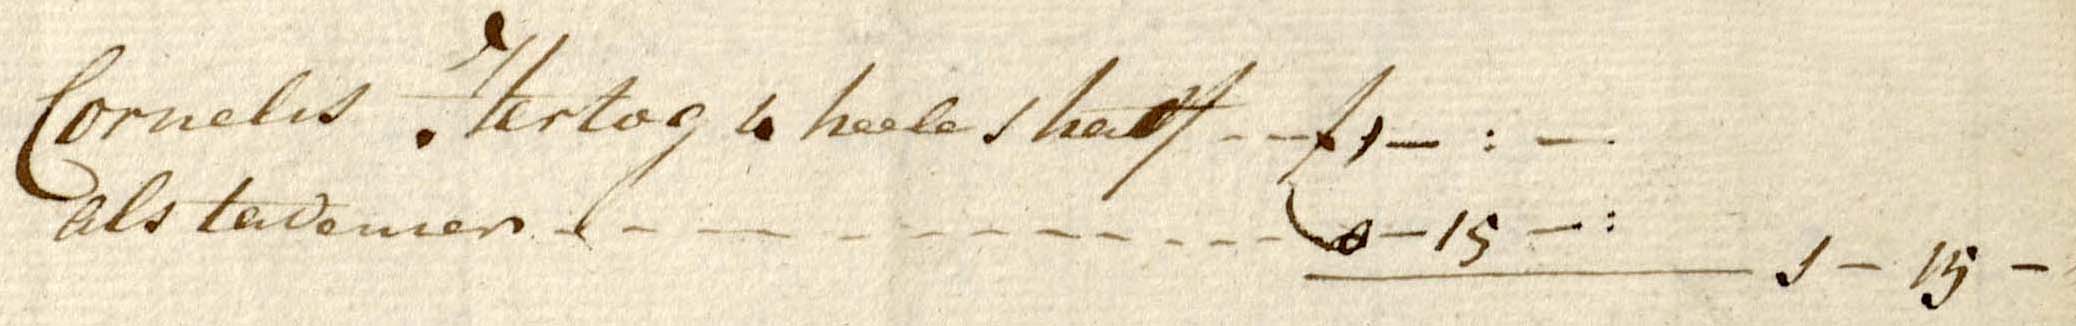 Cornelis Hertog 4 heele 1 half --- f 1 — : —
als tavenier - - - - - - - - - - 0 — 15 — :
1 — 15 —